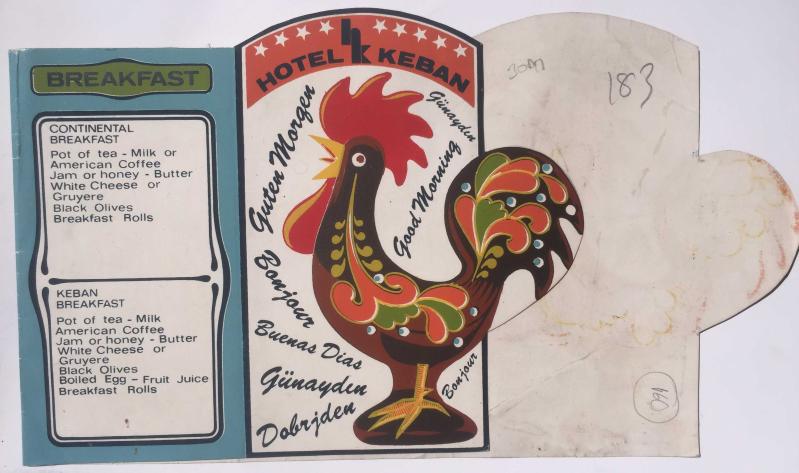 BREAKFAST
CONTINENTAL
BREAKFAST
Pot of tea - Milk or
American Coffee
Jam or honey - Butter
White Cheese or
Gruyere
Black Olives
Breakfast Rolls
KEBAN
BREAKFAST
Pot of tea - Milk
American Coffee
Jam or honey - Butter
White Cheese or
Gruyere
Black Olives
Boiled Egg - Fruit Juice
Breakfast Rolls
HOTEL hk KEBAN
Guten Morgen
Günaydın
Good Morning
Bonjour
Buenas Dias
Günaydın
Dobrjden
Bonjour
183